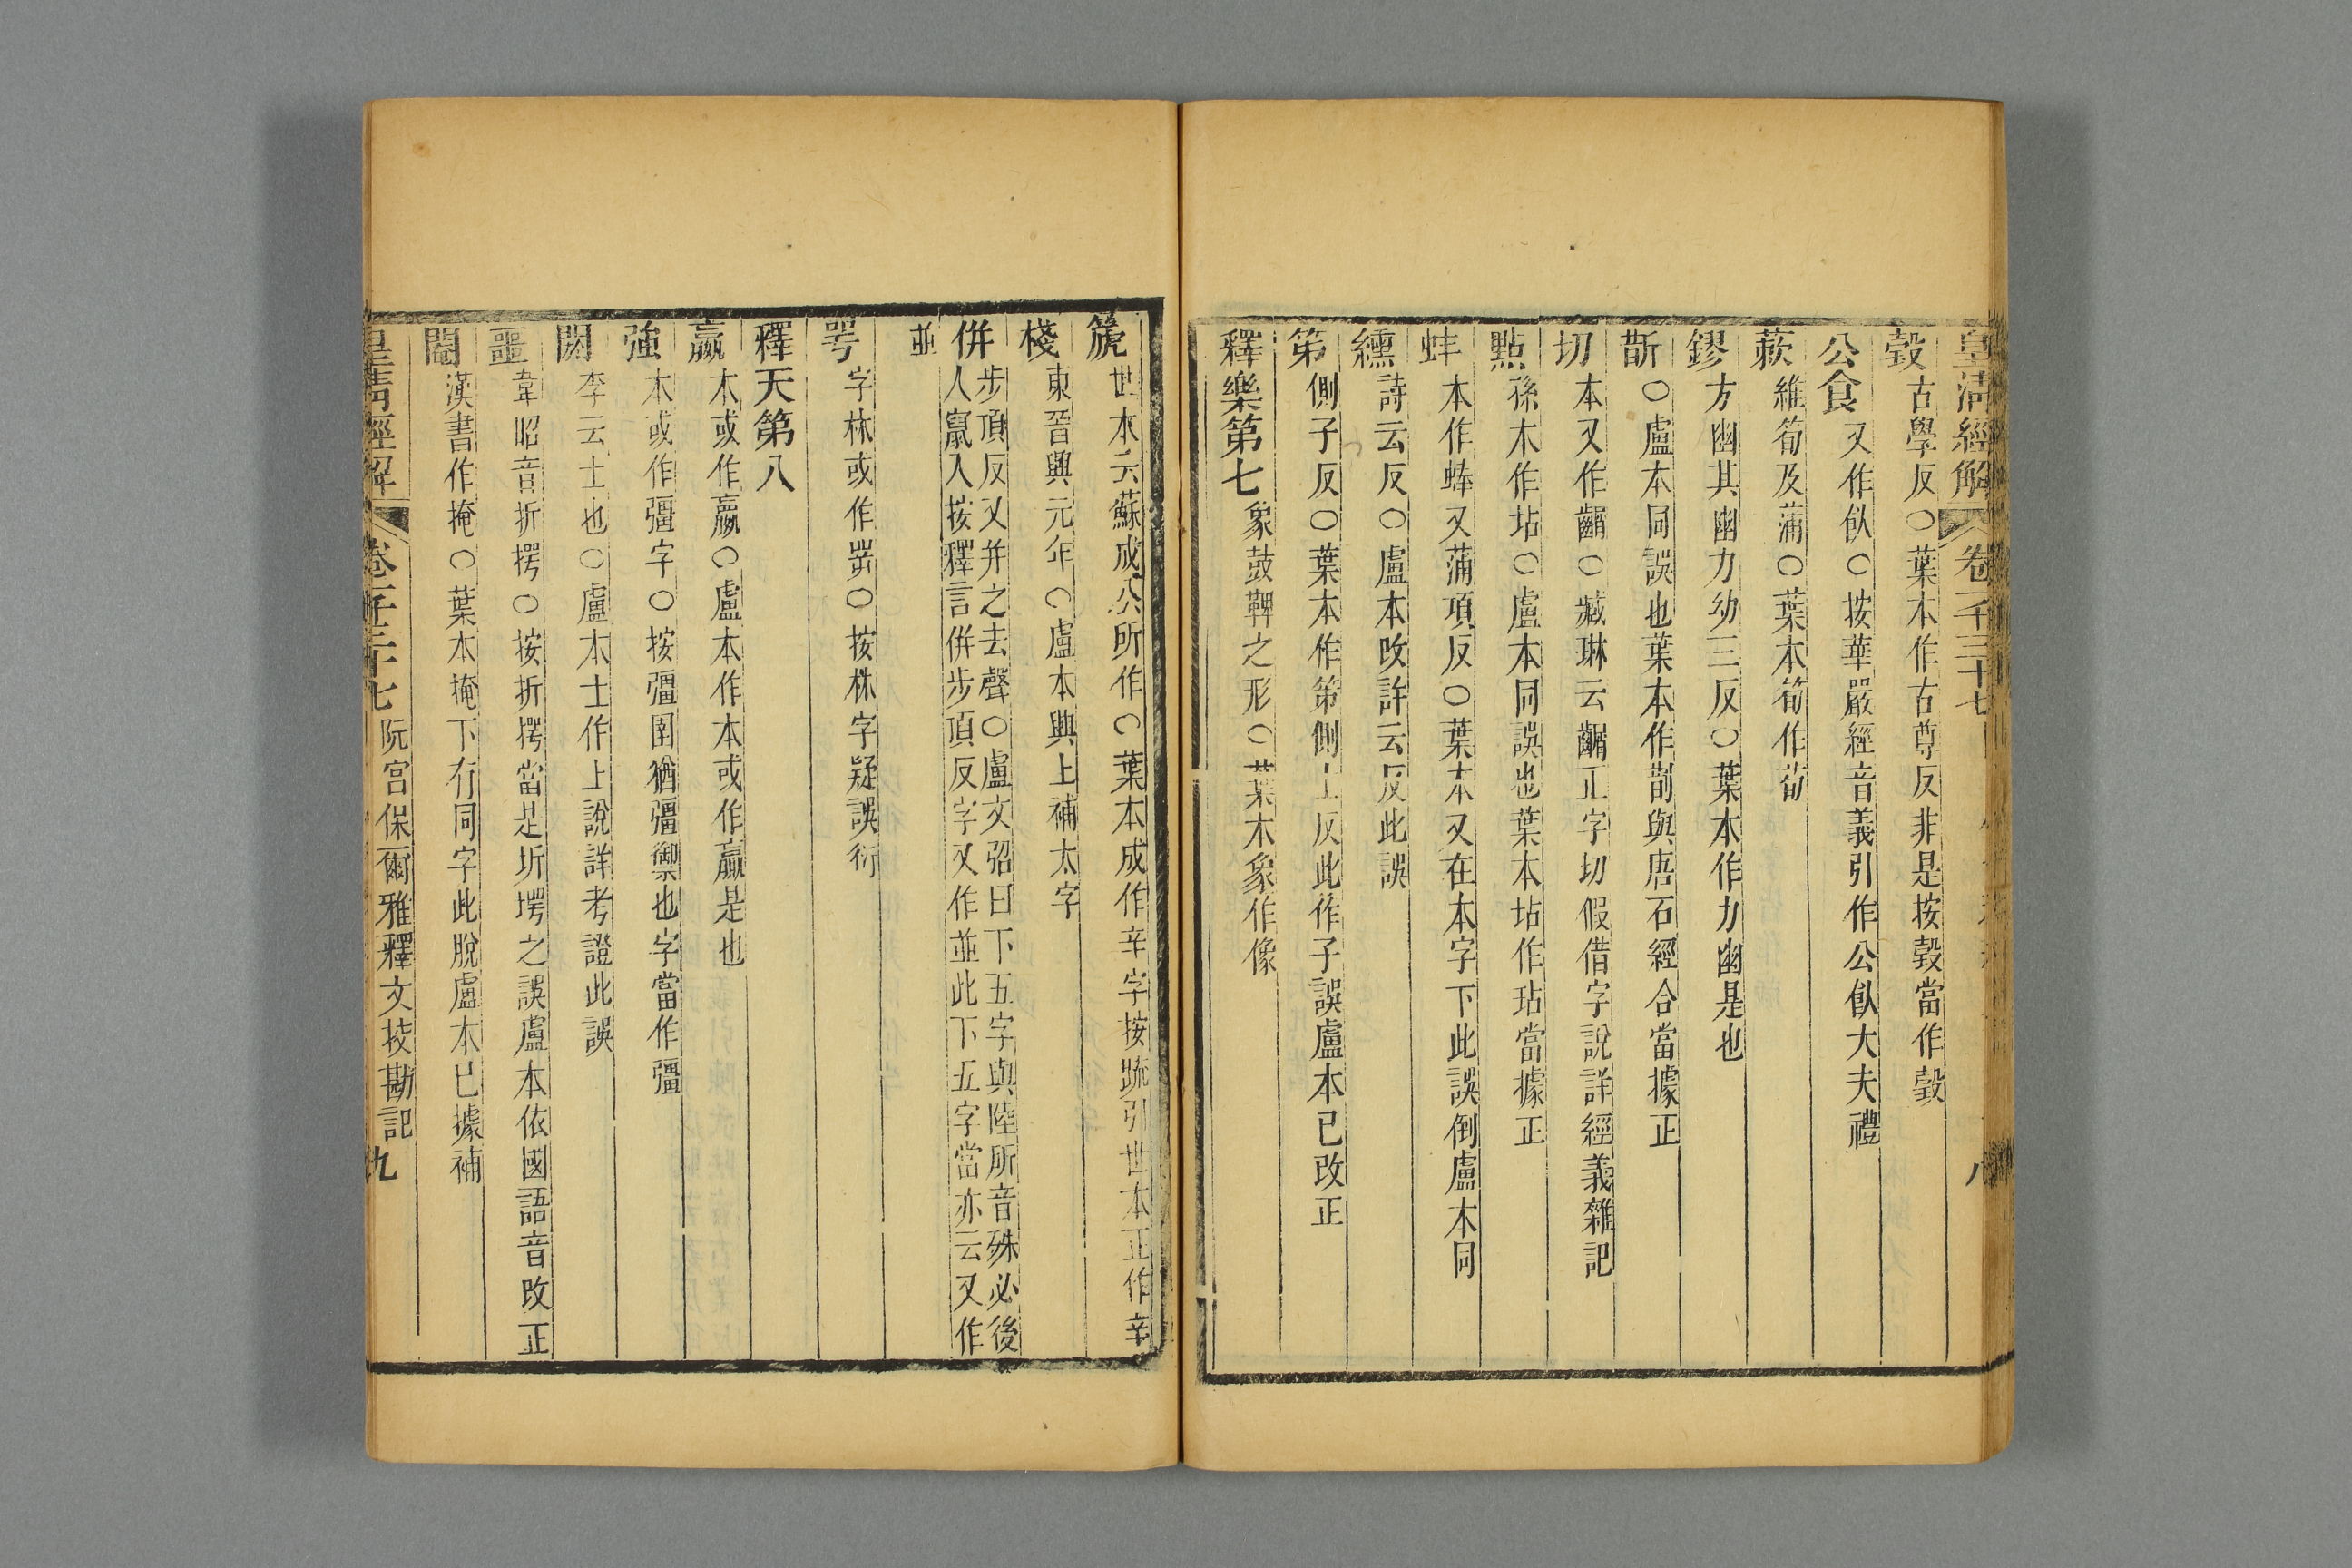 皇清經解 卷一千三十七 八
㲄古學反○葉本作古尊反非是按㲄當作㲄
公食又作飤○按華嚴經音義引作公飤大夫禮
蔌維筍及蒲○葉本筍作荀
鏐方幽其幽力幼三反○葉本作力幽是也
斮○盧本同誤也葉本作䈟與唐石經合當據正
切本又作䶩○臧琳云䶩正字切假借字說詳經義雜記
點孫本作坫○盧本同誤也葉本坫作玷當據正
蚌本作蜯又蒲項反○葉本又在本字下此誤倒盧本同
纁詩云反○盧本改許云反此誤
第側子反○葉本作第側士反此作子誤盧本已改正
釋樂第七象鼓鞞之形○葉本象作像
篪世本云蘇成公所作○葉本成作辛字按疏引世本正作辛
棧東晉興元年○盧本興上補太字
併步頂反又并之去聲○盧文弨曰下五字與陸所音殊必後
人竄入按釋言併步頂反字又作並此下五字當亦云又作
並
咢字林或作㖾○按株字疑誤衍
釋天第八
嬴本或作羸○盧本作本或作贏是也
強本或作彊字○按彊圉猶彊禦也字當作彊
閼李云士也○盧本士作上說詳考證此誤
噩韋昭音折摿○按折摿當是圻堮之誤盧本依國語音改正
閹漢書作掩○葉本掩下有同字此脫盧本已據補
皇清經解 卷一千三十七 阮宮保爾雅釋文挍勘記 九